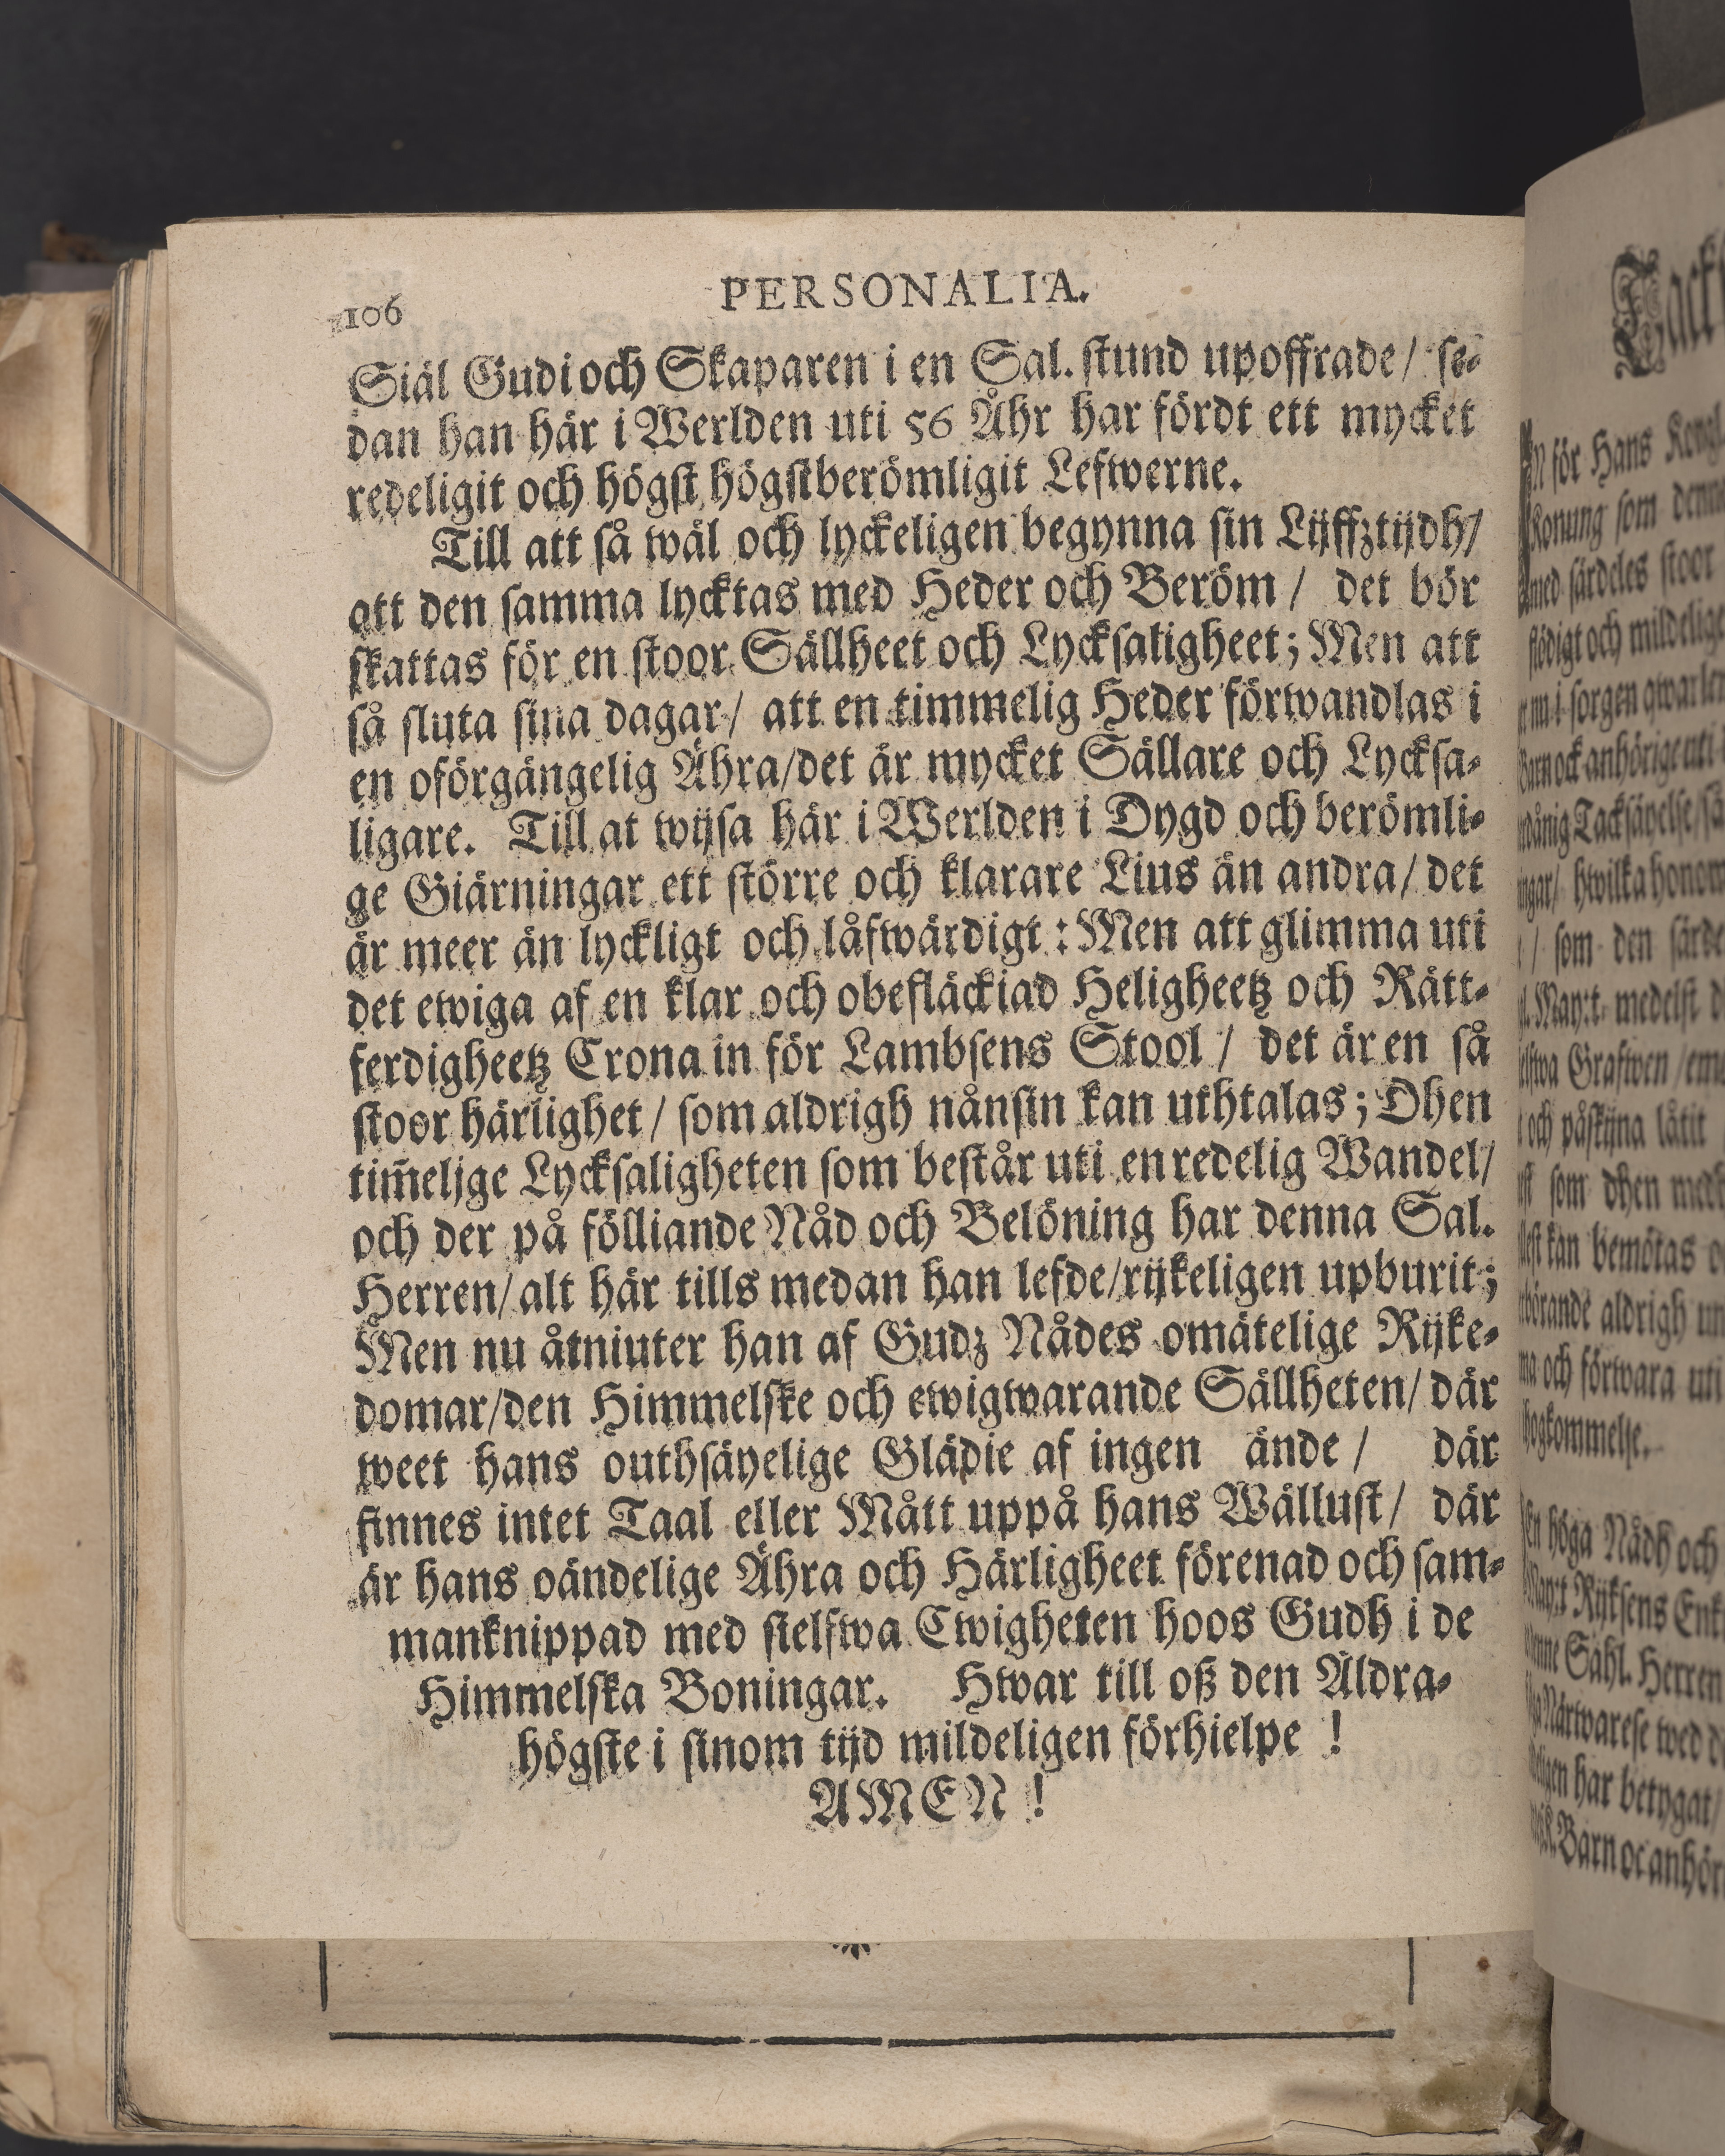 106
PERSONALIA.
Siäl Gudi och Skaparen i en Sal. stund upoffrade / se-
dan han här i Werlden uti 56 Åhr har fördt ett mycket
redeligit och högst högstberömligit Lefwerne.
Till att så wäl och lyckeligen begynna sin Lijffztijdh/
att den samma lycktas med Heder och Beröm / det bör
skattas för en stoor Sällheet och Lycksaligheet; Men att
så sluta sina dagar / att en timmelig Heder förwandlas i
en oförgängelig Ähra/det är mycket Sällare och Lycksa-
ligare. Till at wijsa här i Werlden i Dygd och berömli-
ge Giärningar ett större och klarare Lius än andra / det
är meer än lyckligt och låfwärdigt : Men att glimma uti
det ewiga af en klar och obefläckiad Heligheetz och Rätt-
ferdigheetz Crona in för Lambsens Stool / det är en så
stoor härlighet / som aldrigh nånsin kan uthtalas; Dhen
tim̃elige Lycksaligheten som består uti en redelig Wandel/
och der på fölliande Nåd och Belöning har denna Sal.
Herren/ alt här tills medan han lefde/rijkeligen upburit;
Men nu åtniuter han af Gudz Nådes omätelige Rijke-
domar/den Himmelske och ewigwarande Sällheten/ där
weet hans outhsäyelige Glädie af ingen ände / där
finnes intet Taal eller Mått uppå hans Wällust / där
är hans oändelige Ähra och Härligheet förenad och sam-
manknippad med sielfwa Ewigheten hoos Gudh i de
Himmelska Boningar. Hwar till oß den Aldra-
högste i sinom tijd mildeligen förhielpe !
AMEN !
för Hans Kongl
Konung som
med särdeles stoor
och mildelige
i sorgen
Barn ock anhörige uti
Tacksäyelse
hwilka honom
/ som den
May:t medelst
Grafwen
och påskijna låtit
som dhen
kan bemötas
aldrigh
och förwara uti
höga Nådh och
Rijksens
Sahl. Herren
Närwarelse wed
har betygat/
Barn oc